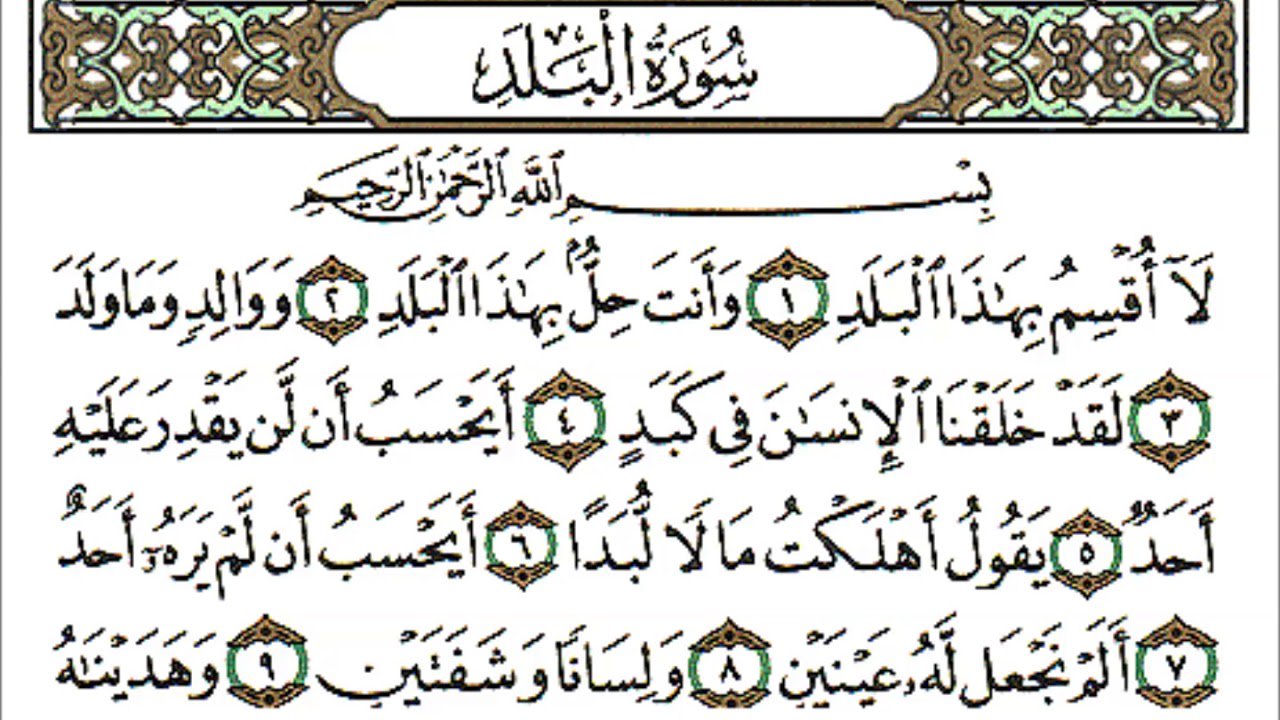 سُورَةُ الْبَلَدِ
بِسْمِ ٱللَّهِ ٱلرَّحْمَٰنِ ٱلرَّحِيمِ
لَآ أُقْسِمُ بِهَٰذَا ٱلْبَلَدِ ١ وَأَنتَ حِلٌّۢ بِهَٰذَا ٱلْبَلَدِ ٢ وَوَالِدٍ وَمَا وَلَدَ
٣ لَقَدْ خَلَقْنَا ٱلْإِنسَٰنَ فِى كَبَدٍ ٤ أَيَحْسَبُ أَن لَّن يَقْدِرَ عَلَيْهِ
أَحَدٌ ٥ يَقُولُ أَهْلَكْتُ مَالًا لُّبَدًا ٦ أَيَحْسَبُ أَن لَّمْ يَرَهُۥٓ أَحَدٌ
٧ أَلَمْ نَجْعَل لَّهُۥ عَيْنَيْنِ ٨ وَلِسَانًا وَشَفَتَيْنِ ٩ وَهَدَيْنَٰهُ